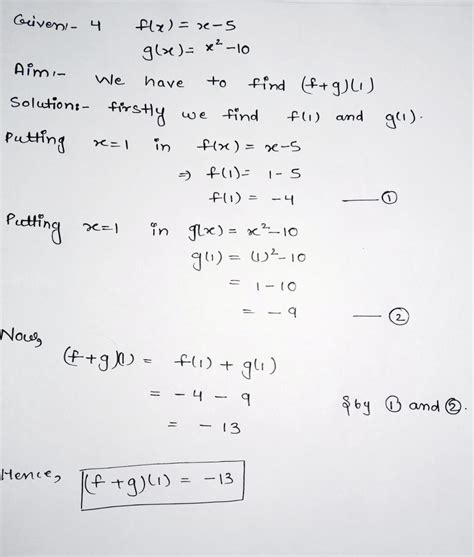 Given:- 4 f(x) = x-5
g(x) = x²-10
Aim:- We have to find (f+g)(1)
Solution:- firstly we find f(1) and g(1).
Putting x=1 in f(x) = x-5
⇒ f(1) = 1-5
f(1) = -4 — ①
Putting x=1 in g(x) = x²-10
g(1) = (1)²-10
= 1-10
= -9 — ②
Now,
(f+g)(1) = f(1) + g(1)
= -4 - 9 {by ① and ②.
= -13
Hence, (f+g)(1) = -13